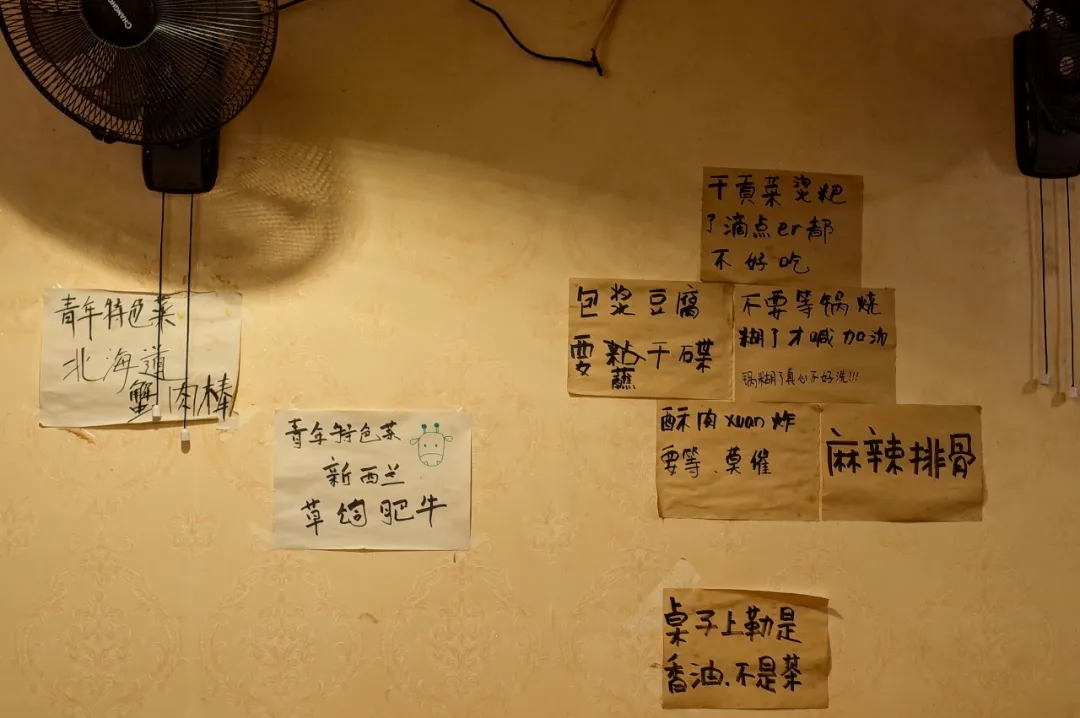 CHANGHONG
青年特色菜
北海道
蟹肉棒
青年特色菜
新西兰
草饲肥牛
干貢菜烫粑
了滴点er都
不好吃
包浆豆腐
要粘干碟
蘸
不要等锅烧
糊了才喊加汤
锅糊了真心不好洗!!!
酥肉xuan炸
要等、莫催
麻辣排骨
桌子上勒是
香油、不是茶